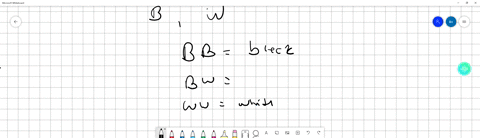 B , W
BB = black
BW =
WW = white